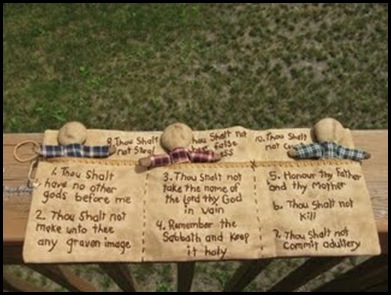 9. Thou Shalt
not Steal
Thou Shalt not
false
ess
10. Thou Shalt
not Cov
1. Thou Shalt
have no other
gods before me
2. Thou Shalt not
make unto thee
any graven image
3. Thou Shalt not
take the name of
the Lord thy God
in vain
4. Remember the
Sabbath and Keep
it holy
5. Honour thy Father
and thy Mother
6. Thou Shalt not
Kill
7. Thou Shalt not
Commit adultery